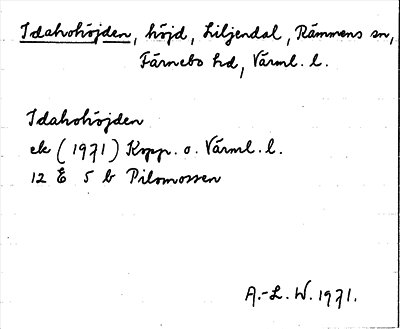 Idahohöjden, höjd, Liljendal, Rämmens sn,
Färnebo hd, Värml. l.
Idahohöjden
ek (1971) Kopp. o. Värml. l.
12 E 5 b Pilomossen
A.-L. W. 1971.